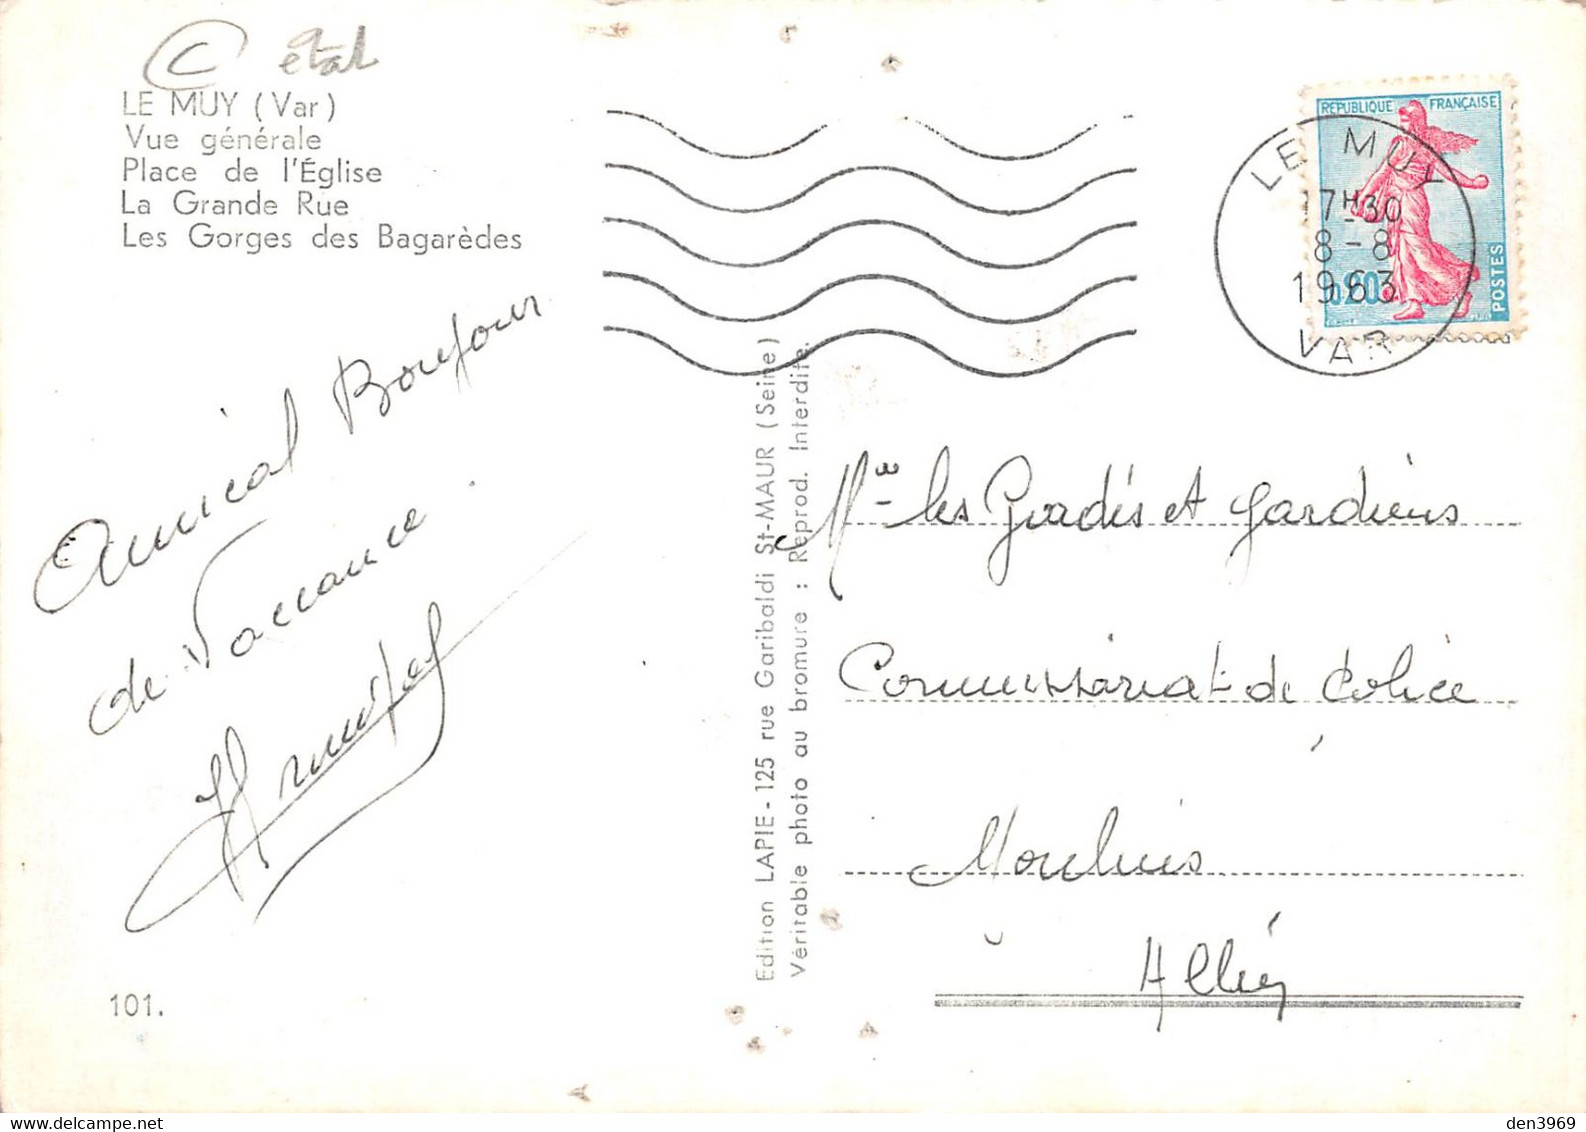 C état
LE MUY (Var)
Vue générale
Place de l'Église
La Grande Rue
Les Gorges des Bagarèdes
Amical Bonjour
de Vacance
101.
Edition LAPIE - 125 rue Garibaldi St-MAUR (Seine)
Véritable photo au bromure : Reprod. Interdite.
RÉPUBLIQUE FRANÇAISE
POSTES
0,20
LE MUY
17H30
8-8
1963
VAR
les Gradés et Gardiens
Commissariat de Police
Moulins
Allier
den3969